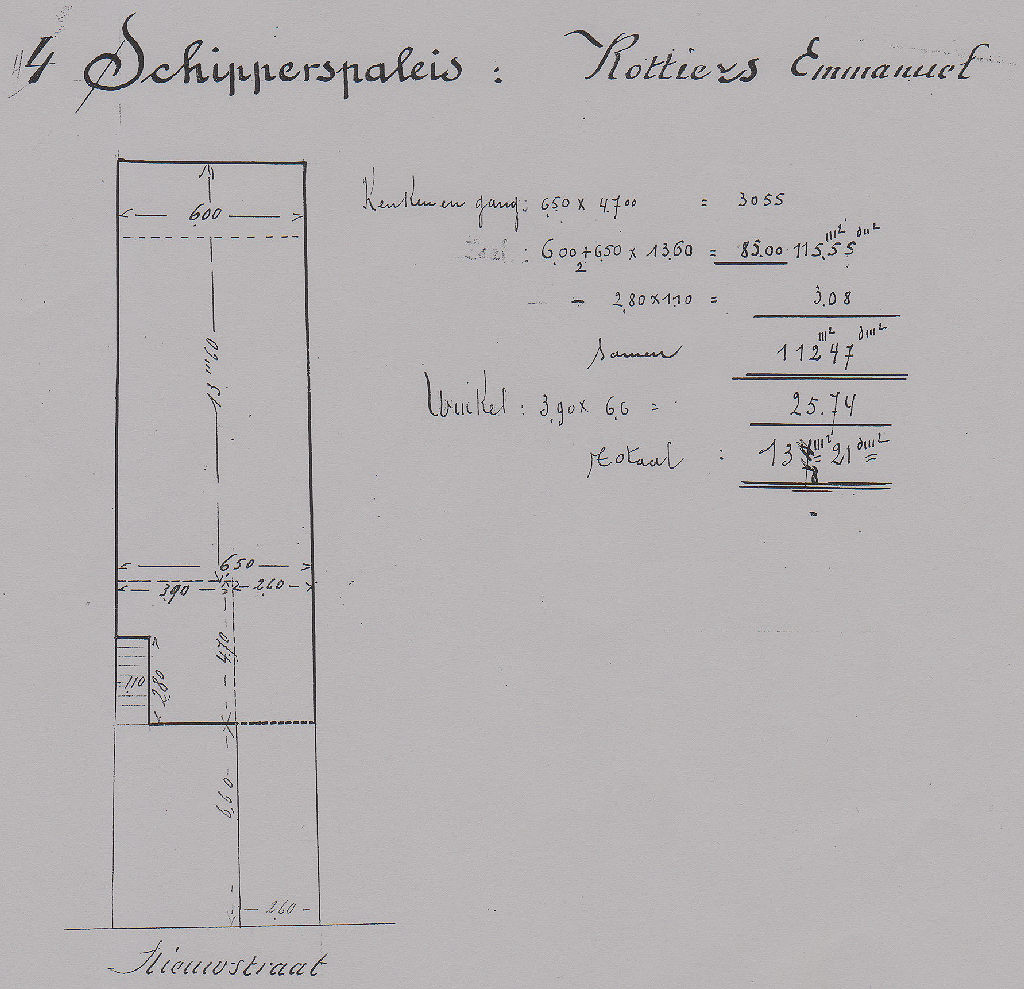 4 Schipperspaleis : Rottiers Emmanuel
Keuken en gang : 6,50 x 4,7⁰⁰ = 30 55
Zaal : 6,00 + 6,50 x 13,60 = 85.00 115,55 m² dm²
2
- 2,80 x 1.10 = 3,08
Samen 112 47 m² dm²
Winkel : 3,90 x 6,6 = 25.74
Totaal : 138 m² 21 dm²
6,00
13 m 60
6,50
3,90
2,60
4,70
1,10
2,80
6,60
2,60
Nieuwstraat